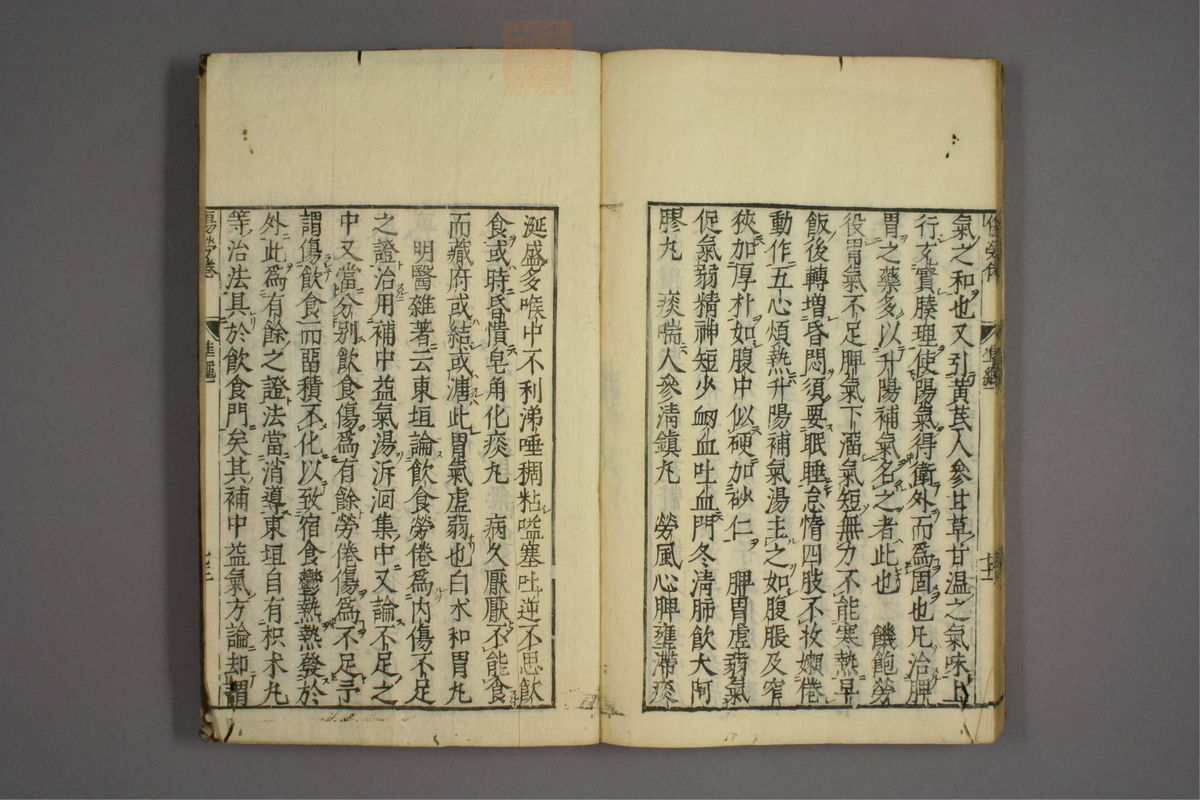 氣之和也又引黃芪人參甘草甘温之氣味上
行充實腠理使陽氣得衛外而爲固也凡治脾
胃之藥多以升陽補氣名之者此也　饑飽勞
役胃氣不足脾氣下溜氣短無力不能寒熱早
飯後轉增昏悶須要眠睡怠惰四肢不收嬾倦
動作五心煩熱升陽補氣湯主之如腹脹及窄
狹加厚朴如腹中似硬加砂仁　脾胃虛弱氣
促氣弱精神短少衂血吐血門冬清肺飲大阿
膠丸　痰喘人參清鎮丸　勞風心脾壅滯痰
涎盛多喉中不利涕唾稠粘嗌塞吐逆不思飲
食或時昏憒皂角化痰丸　病久厭厭不能食
而藏府或結或溏此胃氣虛弱也白朮和胃丸
明醫雜著云東垣論飲食勞倦爲内傷不足
之證治用補中益氣湯泝洄集中又論不足之
中又當分别飲食傷爲有餘勞倦傷爲不足予
謂傷飲食而畱積不化以致宿食鬱熱熱發於
外此爲有餘之證法當消導東垣自有枳朮丸
等治法具於飲食門矣其補中益氣方論却謂